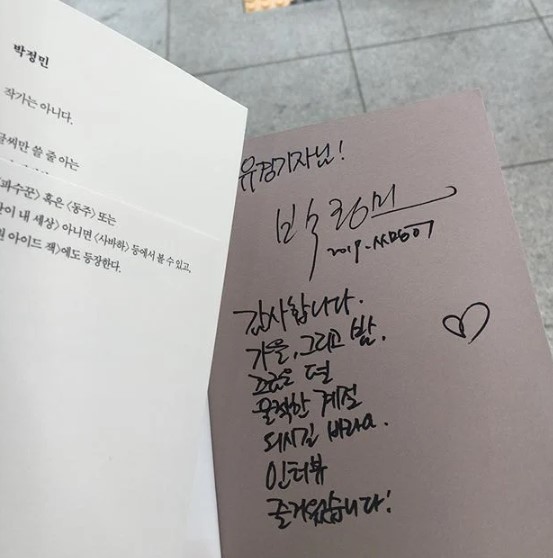 박정민
작가는 아니다.
글씨만 쓸 줄 아는
파수꾼〉 혹은 〈동주〉 또는
이 내 세상〉 아니면 〈사바하〉 등에서 볼 수 있고,
아이드 잭〉에도 등장한다.
유경기자님!
박정민
2019.
감사합니다.
가을, 그리고 밤.
조금은 덜
울적한 계절
되시길 바라요.
인터뷰
즐거웠습니다!